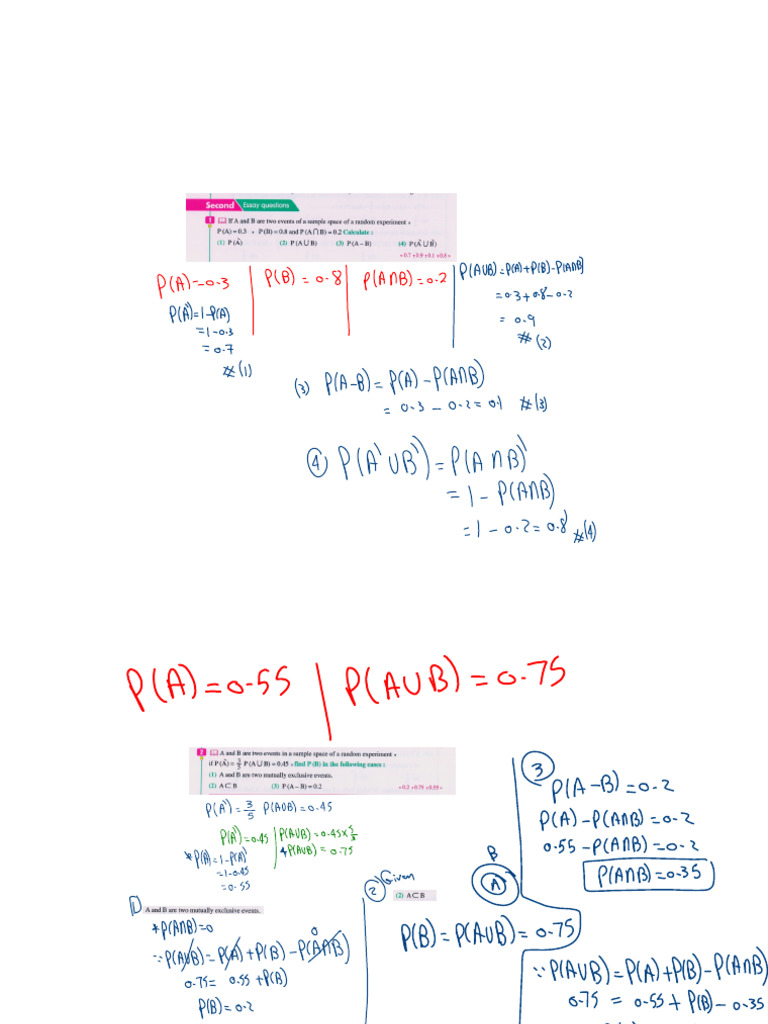 Second Essay questions
1 If A and B are two events of a sample space of a random experiment ,
P (A) = 0.3 , P (B) = 0.8 and P (A ∩ B) = 0.2 Calculate :
(1) P (A`) (2) P (A ∪ B) (3) P (A – B) (4) P (A` ∪ B`)
« 0.7 , 0.9 , 0.1 , 0.8 »
P(A) = 0.3
P(B) = 0.8
P(A∩B) = 0.2
P(A∪B) = P(A) + P(B) - P(A∩B)
= 0.3 + 0.8 - 0.2
= 0.9
#(2)
P(A`) = 1 - P(A)
= 1 - 0.3
= 0.7
#(1)
(3) P(A-B) = P(A) - P(A∩B)
= 0.3 - 0.2 = 0.1 #(3)
4 P(A` ∪ B`) = P(A ∩ B)`
= 1 - P(A∩B)
= 1 - 0.2 = 0.8 #(4)
P(A) = 0.55 | P(A∪B) = 0.75
2 A and B are two events in a sample space of a random experiment ,
if P (A`) = 3/5 P (A ∪ B) = 0.45 , find P (B) in the following cases :
(1) A and B are two mutually exclusive events.
(2) A ⊂ B (3) P (A – B) = 0.2
« 0.2 , 0.75 , 0.55 »
P(A`) = 3/5 P(A∪B) = 0.45
P(A`) = 0.45
* P(A) = 1 - P(A`)
= 1 - 0.45
= 0.55
P(A∪B) = 0.45 × 5/3
P(A∪B) = 0.75
1 A and B are two mutually exclusive events.
* P(A∩B) = 0
∵ P(A∪B) = P(A) + P(B) - P(A∩B) 0
0.75 = 0.55 + P(B)
P(B) = 0.2
2 Given
(2) A ⊂ B
B
A
P(B) = P(A∪B) = 0.75
3
P(A-B) = 0.2
P(A) - P(A∩B) = 0.2
0.55 - P(A∩B) = 0.2
P(A∩B) = 0.35
∵ P(A∪B) = P(A) + P(B) - P(A∩B)
0.75 = 0.55 + P(B) - 0.35